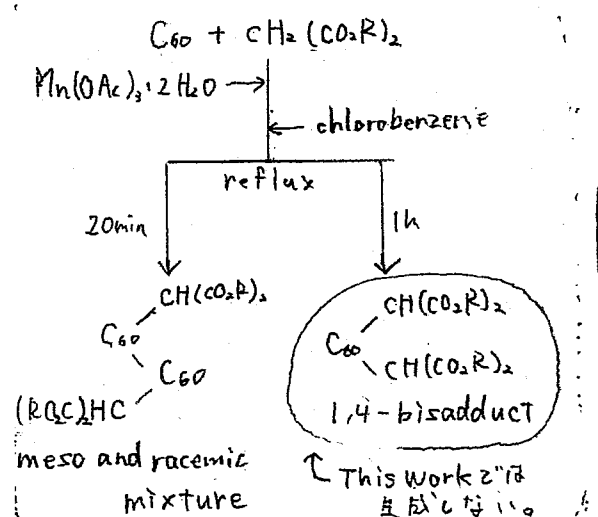 C60 + CH2(CO2R)2
Mn(OAc)3·2H2O
chlorobenzene
reflux
20min
1h
CH(CO2R)2
C60
C60
(RO2C)2HC
meso and racemic
mixture
CH(CO2R)2
C60
CH(CO2R)2
1,4-bisadduct
This workでは
生成しない。